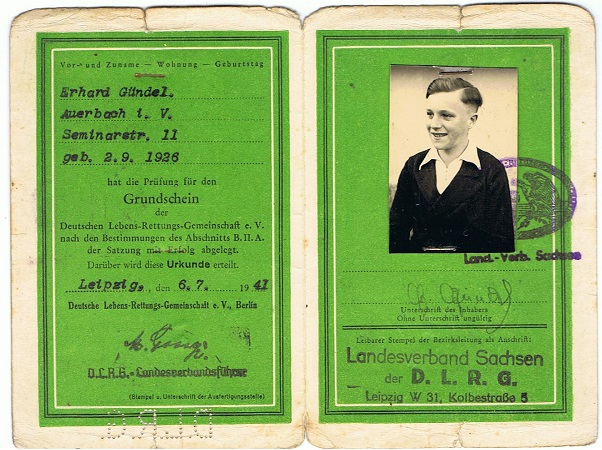 Vor- und Zuname — Wohnung — Geburtstag
Erhard Gündel.
Auerbach i. V.
Seminarstr. 11
geb. 2.9. 1926
hat die Prüfung für den
Grundschein
der
Deutschen Lebens-Rettungs-Gemeinschaft e. V.
nach den Bestimmungen des Abschnitts B. II. A.
der Satzung mit Erfolg abgelegt.
Darüber wird diese Urkunde erteilt.
Leipzig, , den 6.7. 1941
Deutsche Lebens-Rettungs-Gemeinschaft e. V., Berlin
D.L.R.G.-Landesverbandsführer
(Stempel u. Unterschrift der Ausfertigungsstelle)
D.L.R.G.
Land.-Verb. Sachsen
Unterschrift des Inhabers
Ohne Unterschrift ungültig
Lesbarer Stempel der Bezirksleitung als Anschrift:
Landesverband Sachsen
der D. L. R. G.
Leipzig W 31, Kolbestraße 5